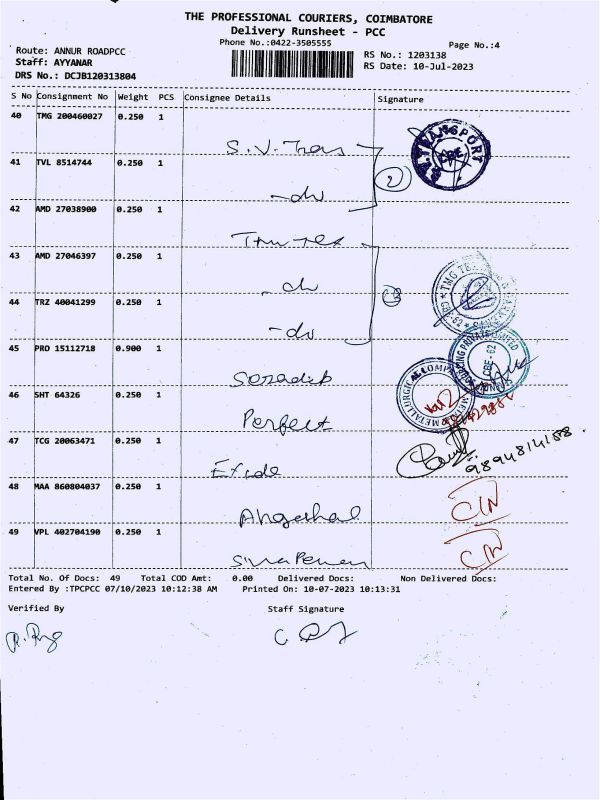 THE PROFESSIONAL COURIERS, COIMBATORE
Delivery Runsheet - PCC
Phone No.:0422-3505555
Page No.:4
Route: ANNUR ROADPCC
Staff: AYYANAR
DRS No.: DCJB120313804
RS No.: 1203138
RS Date: 10-Jul-2023
S No Consignment No Weight PCS Consignee Details Signature
40 TMG 200460027 0.250 1
S.V. Trans
S.V. TRANSPORT CBE
41 TVL 8514744 0.250 1
-do
2
42 AMD 27038900 0.250 1
43 AMD 27046397 0.250 1
-do
44 TRZ 40041299 0.250 1
-do
45 PRO 15112718 0.900 1
46 SHT 64326 0.250 1
Perfect
47 TCG 20063471 0.250 1
Exide
9894814188
48 MAA 860804037 0.250 1
49 VPL 402704190 0.250 1
Total No. Of Docs: 49 Total COD Amt: 0.00 Delivered Docs: Non Delivered Docs:
Entered By :TPCPCC 07/10/2023 10:12:38 AM Printed On: 10-07-2023 10:13:31
Verified By Staff Signature